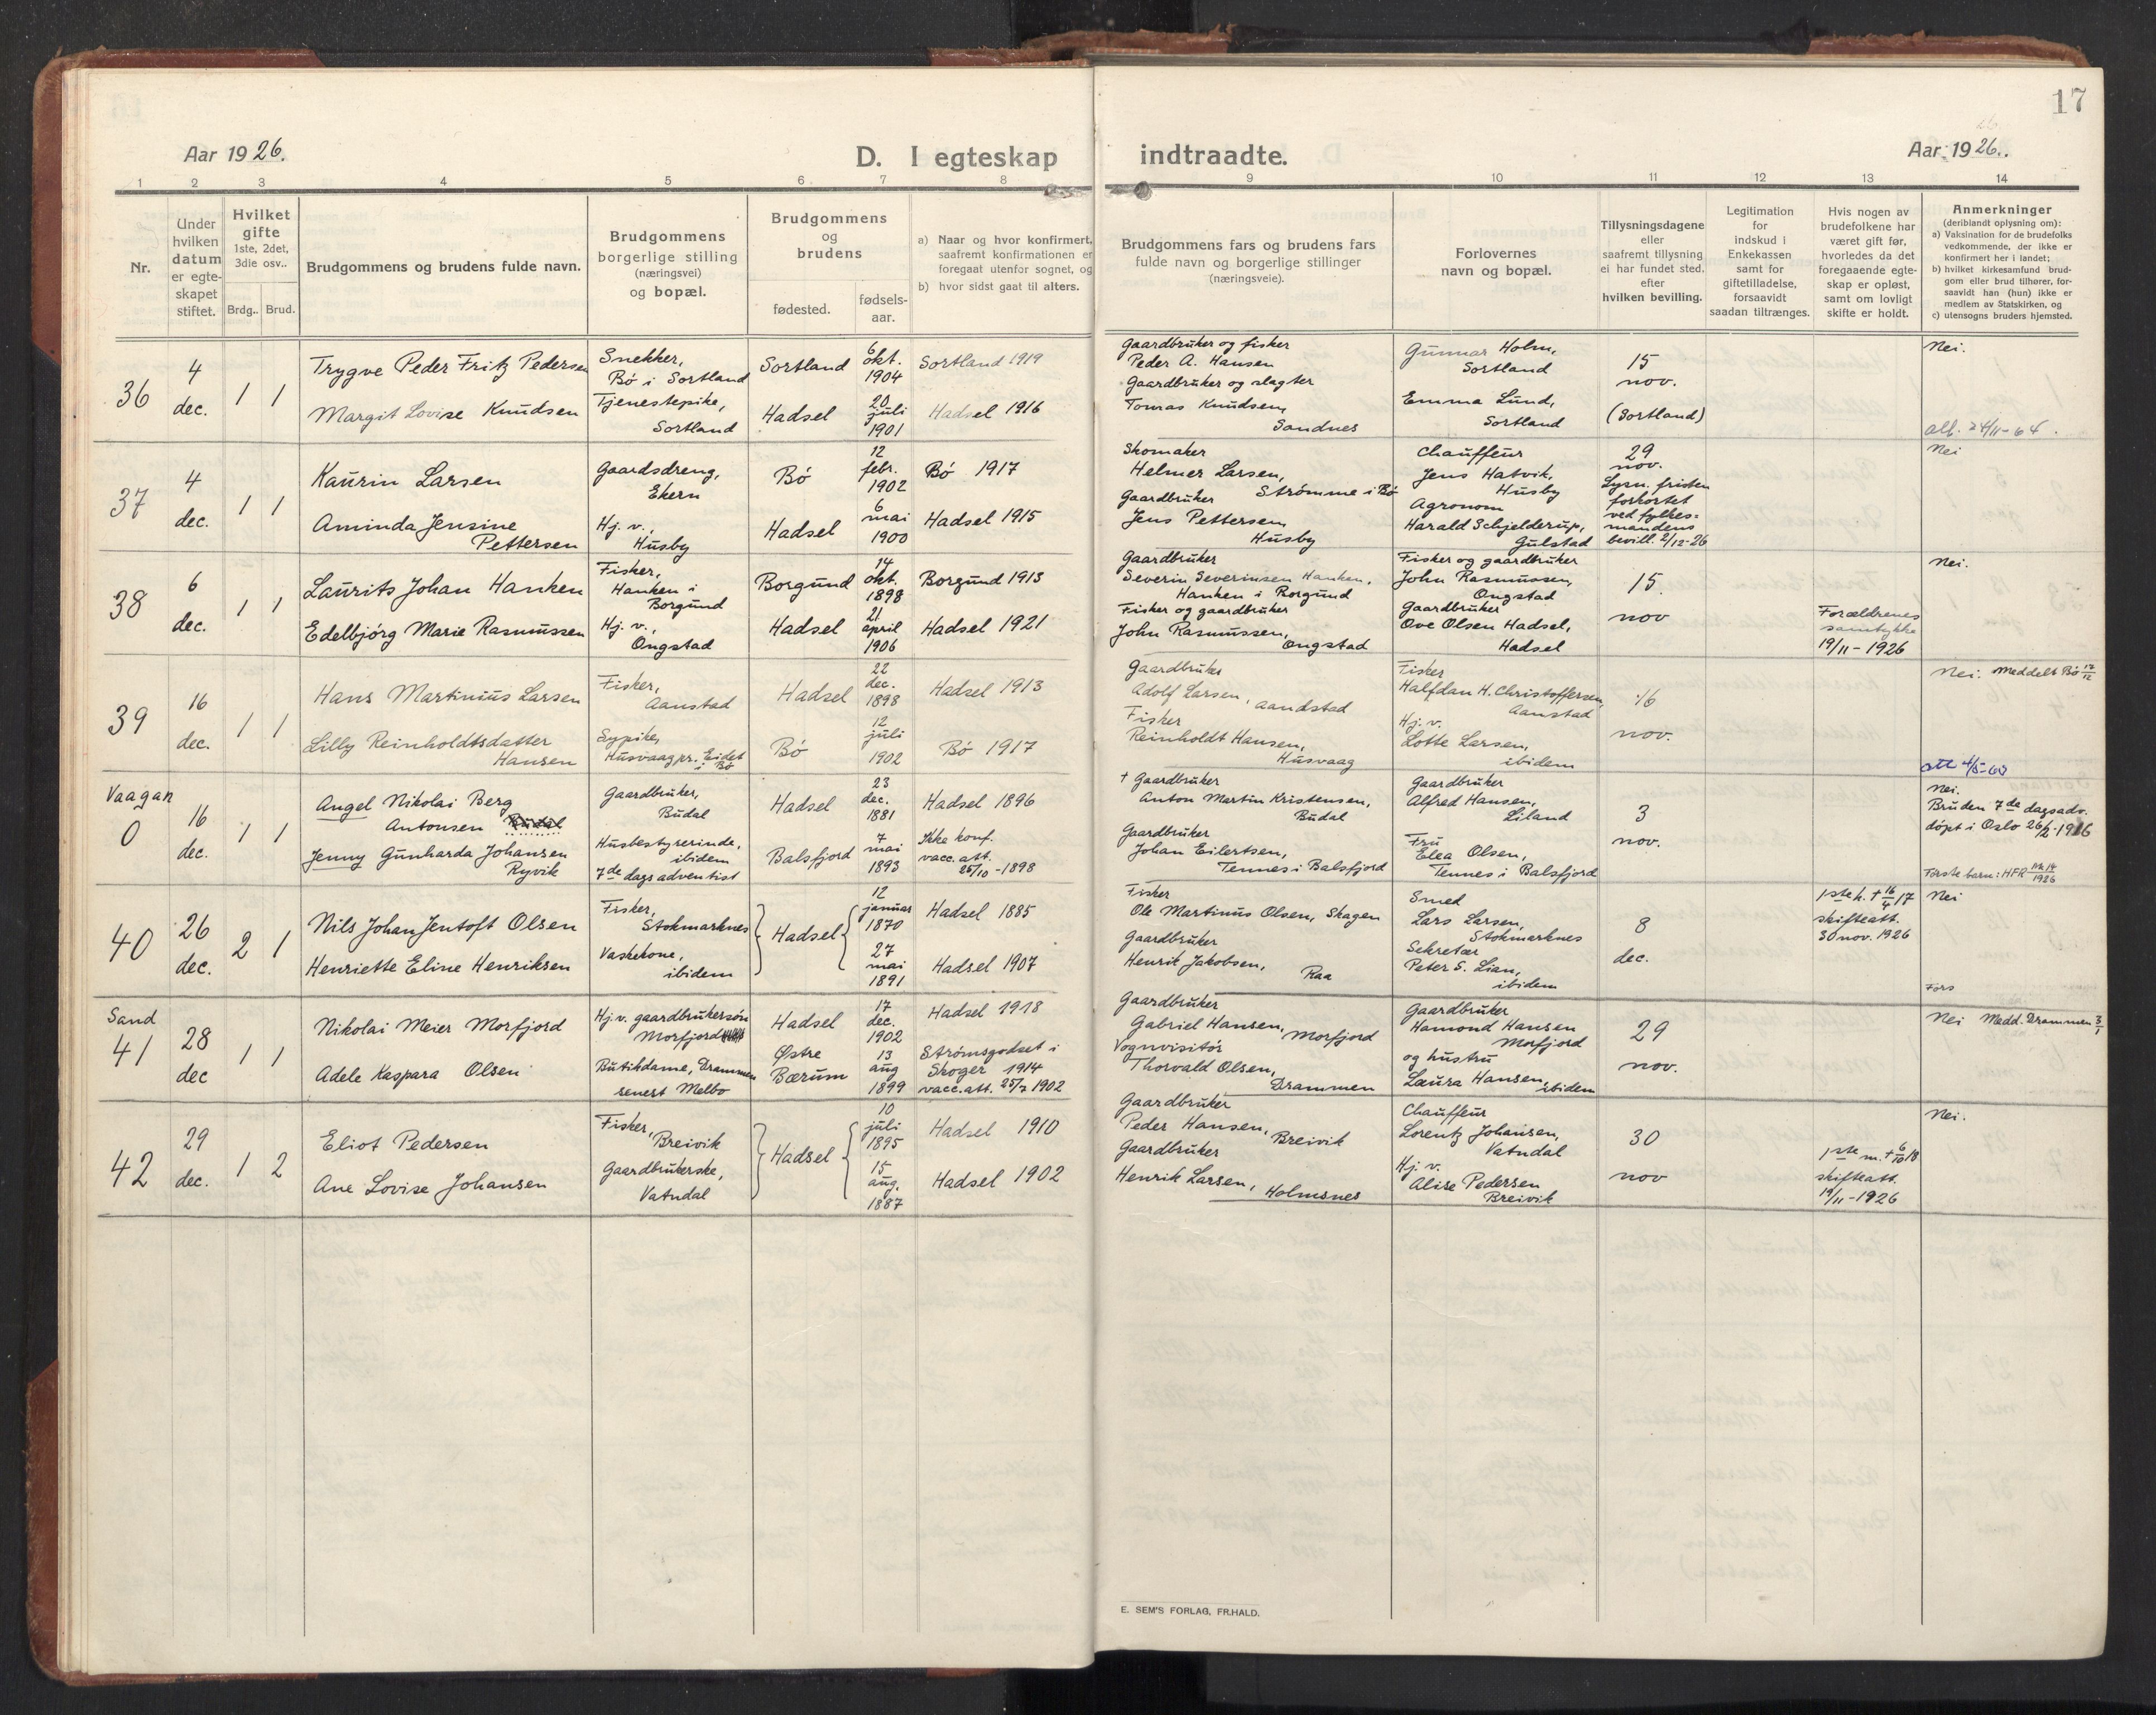 17
Aar 1926.
D. I egteskap indtraadte.
Aar 1926.
1 2 3 4 5 6 7 8 9 10 11 12 13 14
Nr.
Under hvilken datum er egteskapet stiftet.
Hvilket gifte 1ste, 2det, 3die osv..
Brdg.. Brud.
Brudgommens og brudens fulde navn.
Brudgommens borgerlige stilling (næringsvei) og bopæl.
Brudgommens og brudens
fødested.
fødselsaar.
a) Naar og hvor konfirmert, saafremt konfirmationen er foregaat utenfor sognet, og
b) hvor sidst gaat til alters.
Brudgommens fars og brudens fars fulde navn og borgerlige stillinger (næringsveie).
Forlovernes navn og bopæl.
Tillysningsdagene eller saafremt tillysning ei har fundet sted. efter hvilken bevilling.
Legitimation for indskud i Enkekassen samt for giftetilladelse, forsaavidt saadan tiltrænges.
Hvis nogen av brudefolkene har været gift før, hvorledes da det foregaaende egteskap er opløst, samt om lovligt skifte er holdt.
Anmerkninger (deriblandt oplysning om):
a) Vaksination for de brudefolks vedkommende, der ikke er konfirmert her i landet;
b) hvilket kirkesamfund brudgom eller brud tilhører, forsaavidt han (hun) ikke er medlem av Statskirken, og
c) utensogns bruders hjemsted.
36
4 dec.
1 1
Trygve Peder Fritz Pedersen
Margit Lovise Knudsen
Snekker,
Bö i Sortland
Tjenestepike,
Sortland
Sortland
Hadsel
6 okt. 1904
20 juli 1901
Sortland 1919
Hadsel 1916
Gaardbruker og fisker
Peder A. Hansen
Gaardbruker og slagter
Tomas Knudsen,
Sandnes
Gunnar Holm,
Sortland
Emma Lund,
Sortland
15 nov.
(Sortland)
Nei.
att. 24/11-64.
37
4 dec.
1 1
Kaurin Larsen
Aminda Jensine
Pettersen
Gaardsdreng,
Ekern
Hj. v.,
Husby
Bö
Hadsel
12 febr. 1902
6 mai 1900
Bö 1917
Hadsel 1915
Skomaker
Helmer Larsen,
Strömme i Bö
Gaardbruker
Jens Pettersen,
Husby
Chauffeur
Jens Hatvik,
Husby
Agronom
Harald Schjelderup,
Gulstad
29 nov.
Lysn. fristen
forkortet
ved fylkes=
mandens
bevill. 2/12-26
Nei
38
6 dec.
1 1
Laurits Johan Hanken
Edelbjörg Marie Rasmussen
Fisker,
Hanken i
Borgund
Hj. v.,
Ongstad
Borgund
Hadsel
14 okt. 1898
21 april 1906
Borgund 1913
Hadsel 1921
Gaardbruker
Severin Severinsen Hanken,
Hanken i Borgund
Fisker og gaardbruker
John Rasmussen,
Ongstad
Fisker og gaardbruker
John Rasmussen,
Ongstad
Gaardbruker
Ove Olsen Hadsel,
Hadsel
15. nov
Forældrenes
samtykke
19/11-1926
Nei.
39
16 dec.
1 1
Hans Martinius Larsen
Lilly Reinholdtsdatter
Hansen
Fisker,
Aanstad
Sypike,
Husvaag pr. Eidet
i Bö
Hadsel
Bö
22 dec. 1898
12 juli 1902
Hadsel 1913
Bö 1917
Gaardbruker
Adolf Larsen, Aandstad
Fisker
Reinholdt Hansen,
Husvaag
Fisker
Halfdan H. Christoffersen,
Aanstad
Hj. v.
Lotte Larsen,
ibidem
16 nov.
Nei. Meddelt Bö 17/12
att 4/5-60
Vaagan
0
16 dec.
1 1
Angel Nikolai Berg
Antonsen Budal
Jenny Gunharda Johansen
Ryvik
Gaardbruker,
Budal
Husbestyrerinde,
ibidem
7de dags adventist
Hadsel
Balsfjord
23 dec. 1881
7 mai 1893
Hadsel 1896
Ikke konf.
vacc. att.
25/10-1898
† Gaardbruker
Anton Martin Kristensen,
Budal
Gaardbruker
Johan Eilertsen,
Tennes i Balsfjord
Gaardbruker
Alfred Hansen,
Liland
Fru
Elea Olsen,
Tennes i Balsfjord
3 nov.
Nei.
Bruden 7de dagsadv.
döpt i Oslo 26/2-1916
Förste barn: HFR 14/1926
40
26 dec.
2 1
Nils Johan Jentoft Olsen
Henriette Eline Henriksen
Fisker,
Stokmarknes
Vaskekone,
ibidem
Hadsel
12 januar 1870
27 mai 1891
Hadsel 1885
Hadsel 1907
Fisker
Ole Martinus Olsen, Skagen
Gaardbruker
Henrik Jakobsen,
Raa
Smed
Lars Larsen,
Stokmarknes
Sekretær
Peter S. Lian,
ibidem
8 dec.
1ste h. † 16/4 17
skifteatt.
30 nov. 1926
Nei
Førs
Sand
41
28 dec
1 1
Nikolai Meier Morfjord
Adele Kaspara Olsen
Hj. v. gaardbrukersøn
Morfjord
Butikdame, Drammen
senest Melbo
Hadsel
Østre
Bærum
17 dec. 1902
13 aug 1899
Hadsel 1918
Strömsgodset i
Skoger 1914
vacc. att. 25/7 1902
Gaardbruker
Gabriel Hansen,
Morfjord
Vognvisitör
Thorvald Olsen,
Drammen
Gaardbruker
Hamond Hansen
Morfjord
og hustru
Laura Hansen,
ibidem
29 nov.
Nei Medd. Drammen 3/1
42
29 dec.
1 2
Eliot Pedersen
Ane Lovise Johansen
Fisker,
Breivik
Gaardbrukerske,
Vatndal
Hadsel
10 juli 1895
15 aug. 1887
Hadsel 1910
Hadsel 1902
Gaardbruker
Peder Hansen,
Breivik
Gaardbruker
Henrik Larsen,
Holmsnes
Chauffeur
Lorentz Johansen,
Vatndal
Hj. v.
Alise Pedersen
Breivik
30 nov
1ste m. † 6/10 18
skifteatt.
19/11-1926
Nei.
E. SEM'S FORLAG, FR.HALD.